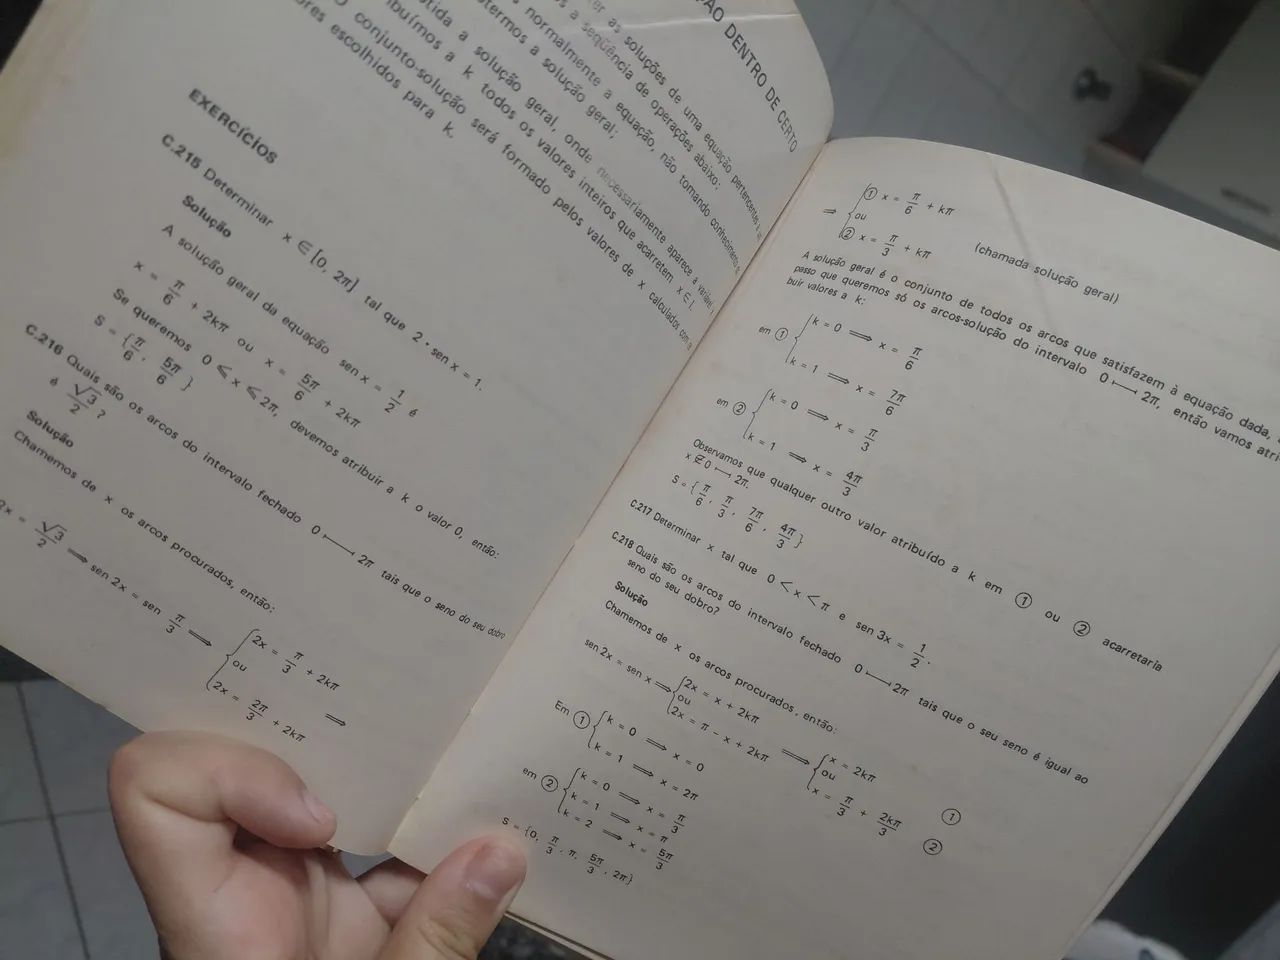 ÇÃO DENTRO DE CERTO
er as soluções de uma equação pertencentes a um
os a seqüência de operações abaixo:
s normalmente a equação, não tomando conhecimento
btermos a solução geral;
tida a solução geral, onde necessariamente aparece a variável
ibuímos a k todos os valores inteiros que acarretem x ∈ I.
O conjunto-solução será formado pelos valores de x calculados com
ores escolhidos para k.
EXERCÍCIOS
C.215 Determinar x ∈ [0, 2π] tal que 2 · sen x = 1.
Solução
A solução geral da equação sen x = 1/2 é
x = π/6 + 2kπ ou x = 5π/6 + 2kπ
Se queremos 0 ⩽ x ⩽ 2π, devemos atribuir a k o valor 0, então:
S = {π/6, 5π/6}
C.216 Quais são os arcos do intervalo fechado 0 ⟼ 2π tais que o seno do seu dobro
é √3/2?
Solução
Chamemos de x os arcos procurados, então:
2x = √3/2 ⟹ sen 2x = sen π/3 ⟹ { 2x = π/3 + 2kπ
ou
2x = 2π/3 + 2kπ ⟹
⟹ { ① x = π/6 + kπ
ou
② x = π/3 + kπ (chamada solução geral)
A solução geral é o conjunto de todos os arcos que satisfazem à equação dada,
passo que queremos só os arcos-solução do intervalo 0 ⟼ 2π, então vamos atri-
buir valores a k:
em ① { k = 0 ⟹ x = π/6
k = 1 ⟹ x = 7π/6
em ② { k = 0 ⟹ x = π/3
k = 1 ⟹ x = 4π/3
Observamos que qualquer outro valor atribuído a k em ① ou ② acarretaria
x ∉ 0 ⟼ 2π.
S = {π/6, π/3, 7π/6, 4π/3}
C.217 Determinar x tal que 0 < x < π e sen 3x = 1/2.
C.218 Quais são os arcos do intervalo fechado 0 ⟼ 2π tais que o seu seno é igual ao
seno do seu dobro?
Solução
Chamemos de x os arcos procurados, então:
sen 2x = sen x ⟹ { 2x = x + 2kπ
ou
2x = π − x + 2kπ ⟹ { x = 2kπ ①
ou
x = π/3 + 2kπ/3 ②
Em ① { k = 0 ⟹ x = 0
k = 1 ⟹ x = 2π
em ② { k = 0 ⟹ x = π/3
k = 1 ⟹ x = π
k = 2 ⟹ x = 5π/3
S = {0, π/3, π, 5π/3, 2π}